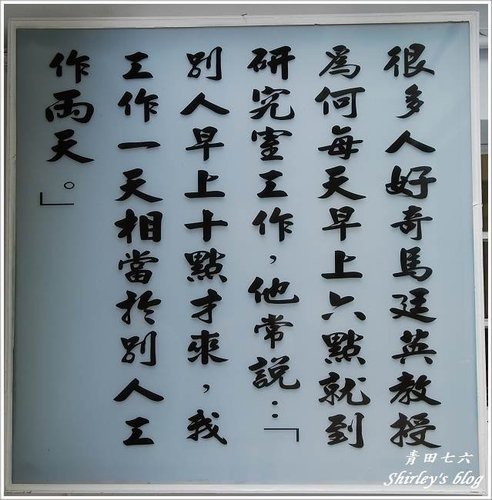 很多人好奇馬廷英教授
為何每天早上六點就到
研究室工作，他常說：「
別人早上十點才來，我
工作一天相當於別人工
作兩天。」
青田七六
Shirley's blog